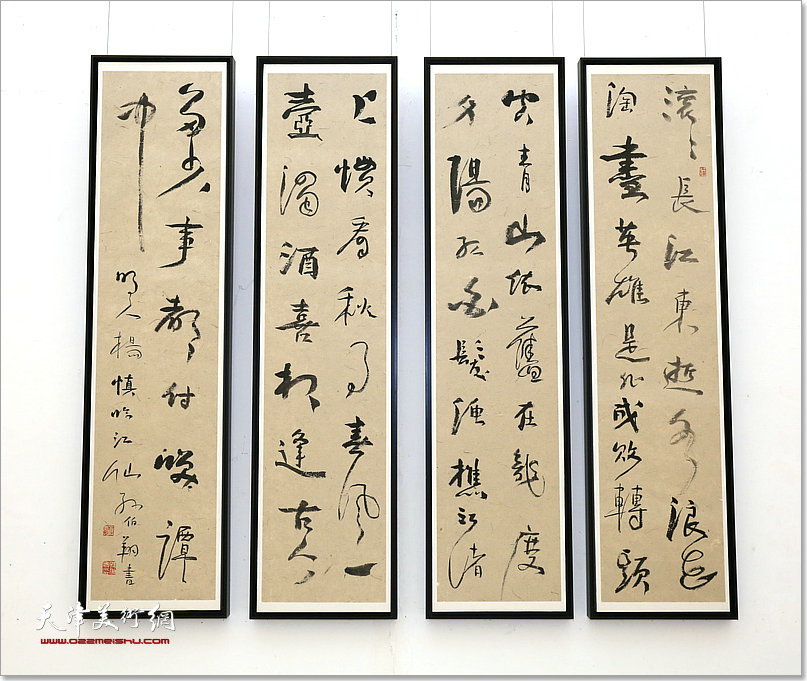 滚〻長江東逝水浪花
淘盡英雄是非成敗轉頭
空青山依舊在幾度
夕陽紅白髮漁樵江渚
上慣看秋月春風一
壺濁酒喜相逢古今
多少事都付笑譚
中 明人楊慎臨江仙 孫伯翔書
天津美術網
www.022meishu.com